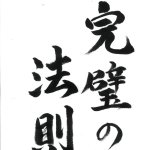 完璧の
法則